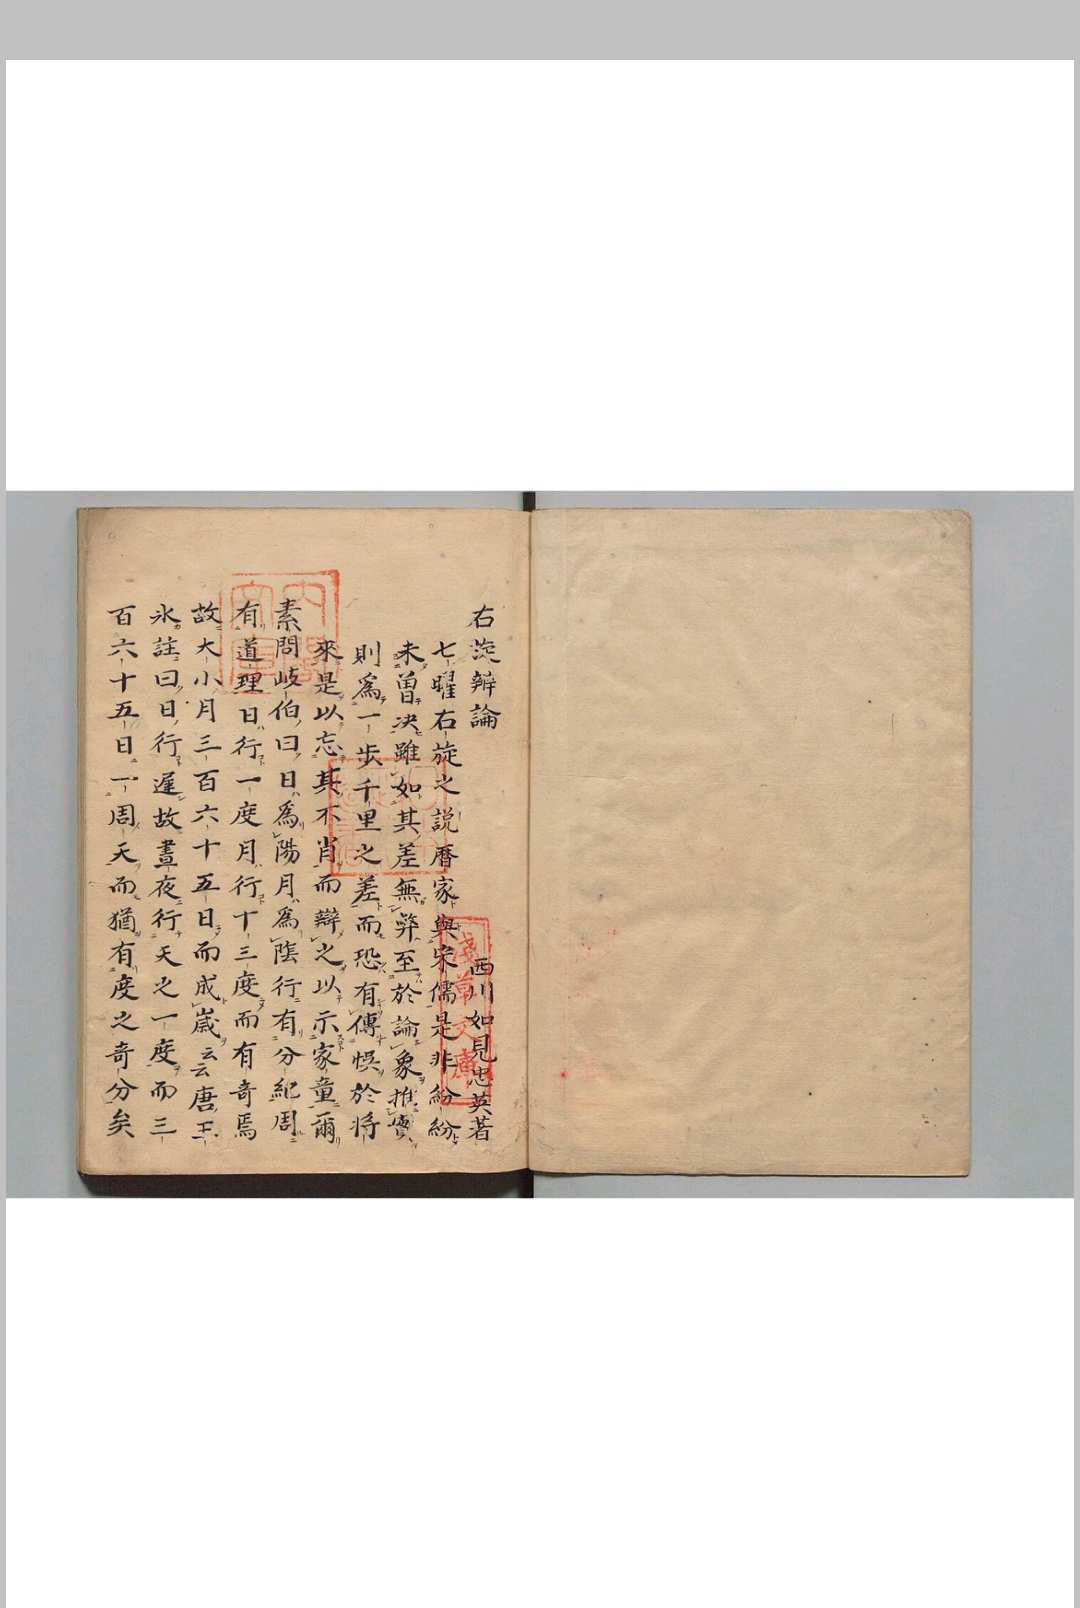 右旋辯論
西川如見忠英著
七曜右旋之説暦家與宋儒是非紛紛
未曽决雖如其差無弊至於論象推實
則爲一歩千里之差而恐有傳悞於将
來是以忘其不肖而辯之以示家童爾
素問岐伯曰日爲陽月爲陰行有分紀周
有道理日行一度月行十三度而有奇焉
故大小月三百六十五日而成歳云云唐王
氷註曰日行遲故晝夜行天之一度而三
百六十五日一周天而猶有度之奇分矣
淺草文庫